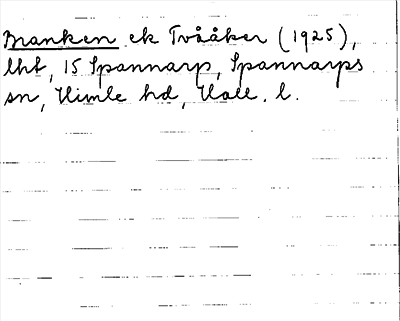 Branken ek Tvååker (1925),
lht, 15 Spannarp, Spannarps
sn, Himle hd, Hall. l.